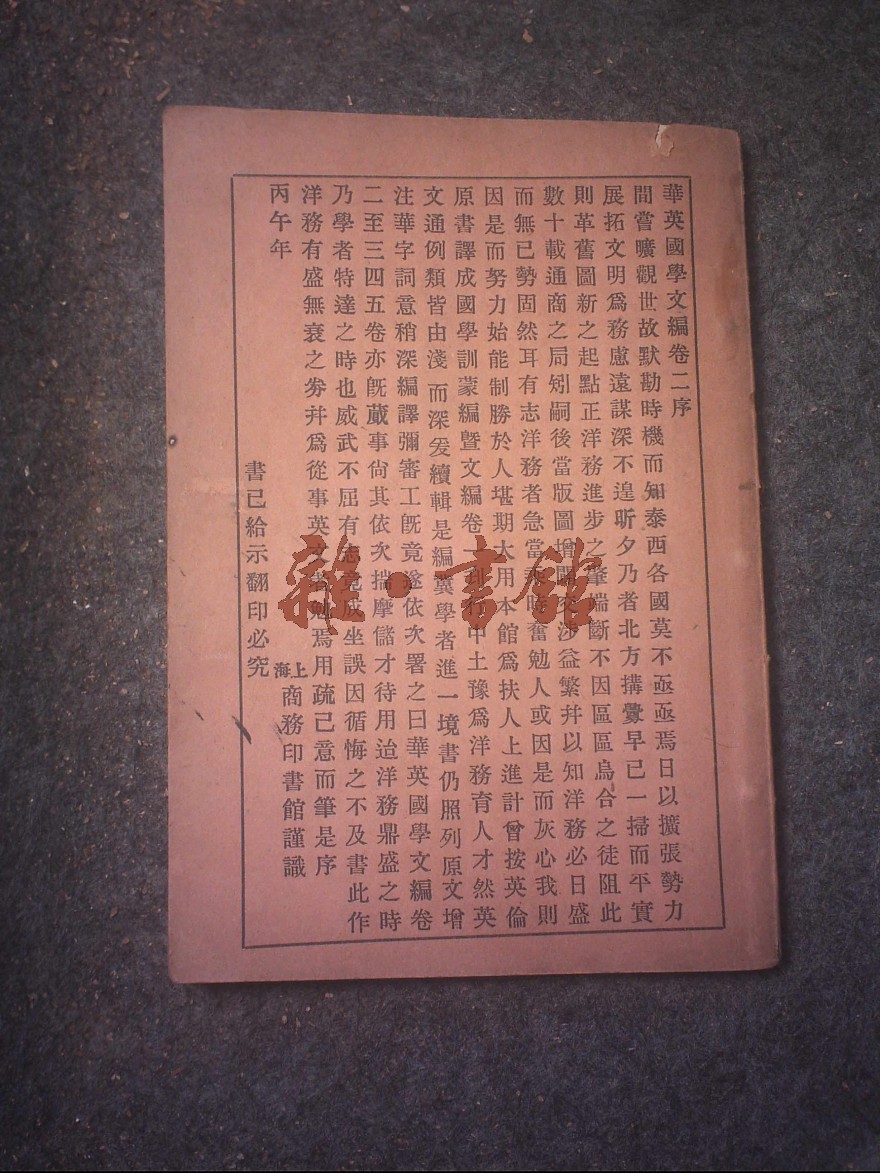 華英國學文編卷二序
間嘗曠觀世故默勘時機而知泰西各國莫不亟亟焉日以擴張勢力
展拓文明爲務慮遠謀深不遑昕夕乃者北方搆釁早已一掃而平實
則革舊圖新之起點正洋務進步之肇端斷不因區區烏合之徒阻此
數十載通商之局矧嗣後當版圖增闢交涉益繁幷以知洋務必日盛
而無已勢固然耳有志洋務者急當乘時奮勉人或因是而灰心我則
因是而努力始能制勝於人堪期大用本館爲扶人上進計曾按英倫
原書譯成國學訓蒙編曁文編卷一刊行中土豫爲洋務育人才然英
文通例類皆由淺而深爰續輯是編冀學者進一境書仍照列原文增
注華字詞意稍深編譯彌審工旣竟遂依次署之曰華英國學文編卷
二至三四五卷亦旣蕆事尙其依次揣摩儲才待用迨洋務鼎盛之時
乃學者特達之時也威武不屈有志竟成坐誤因循悔之不及書此作
洋務有盛無衰之劵幷爲從事英文者勉焉用疏己意而筆是序
丙午年
上海商務印書館謹識
書已給示翻印必究
雜·書館